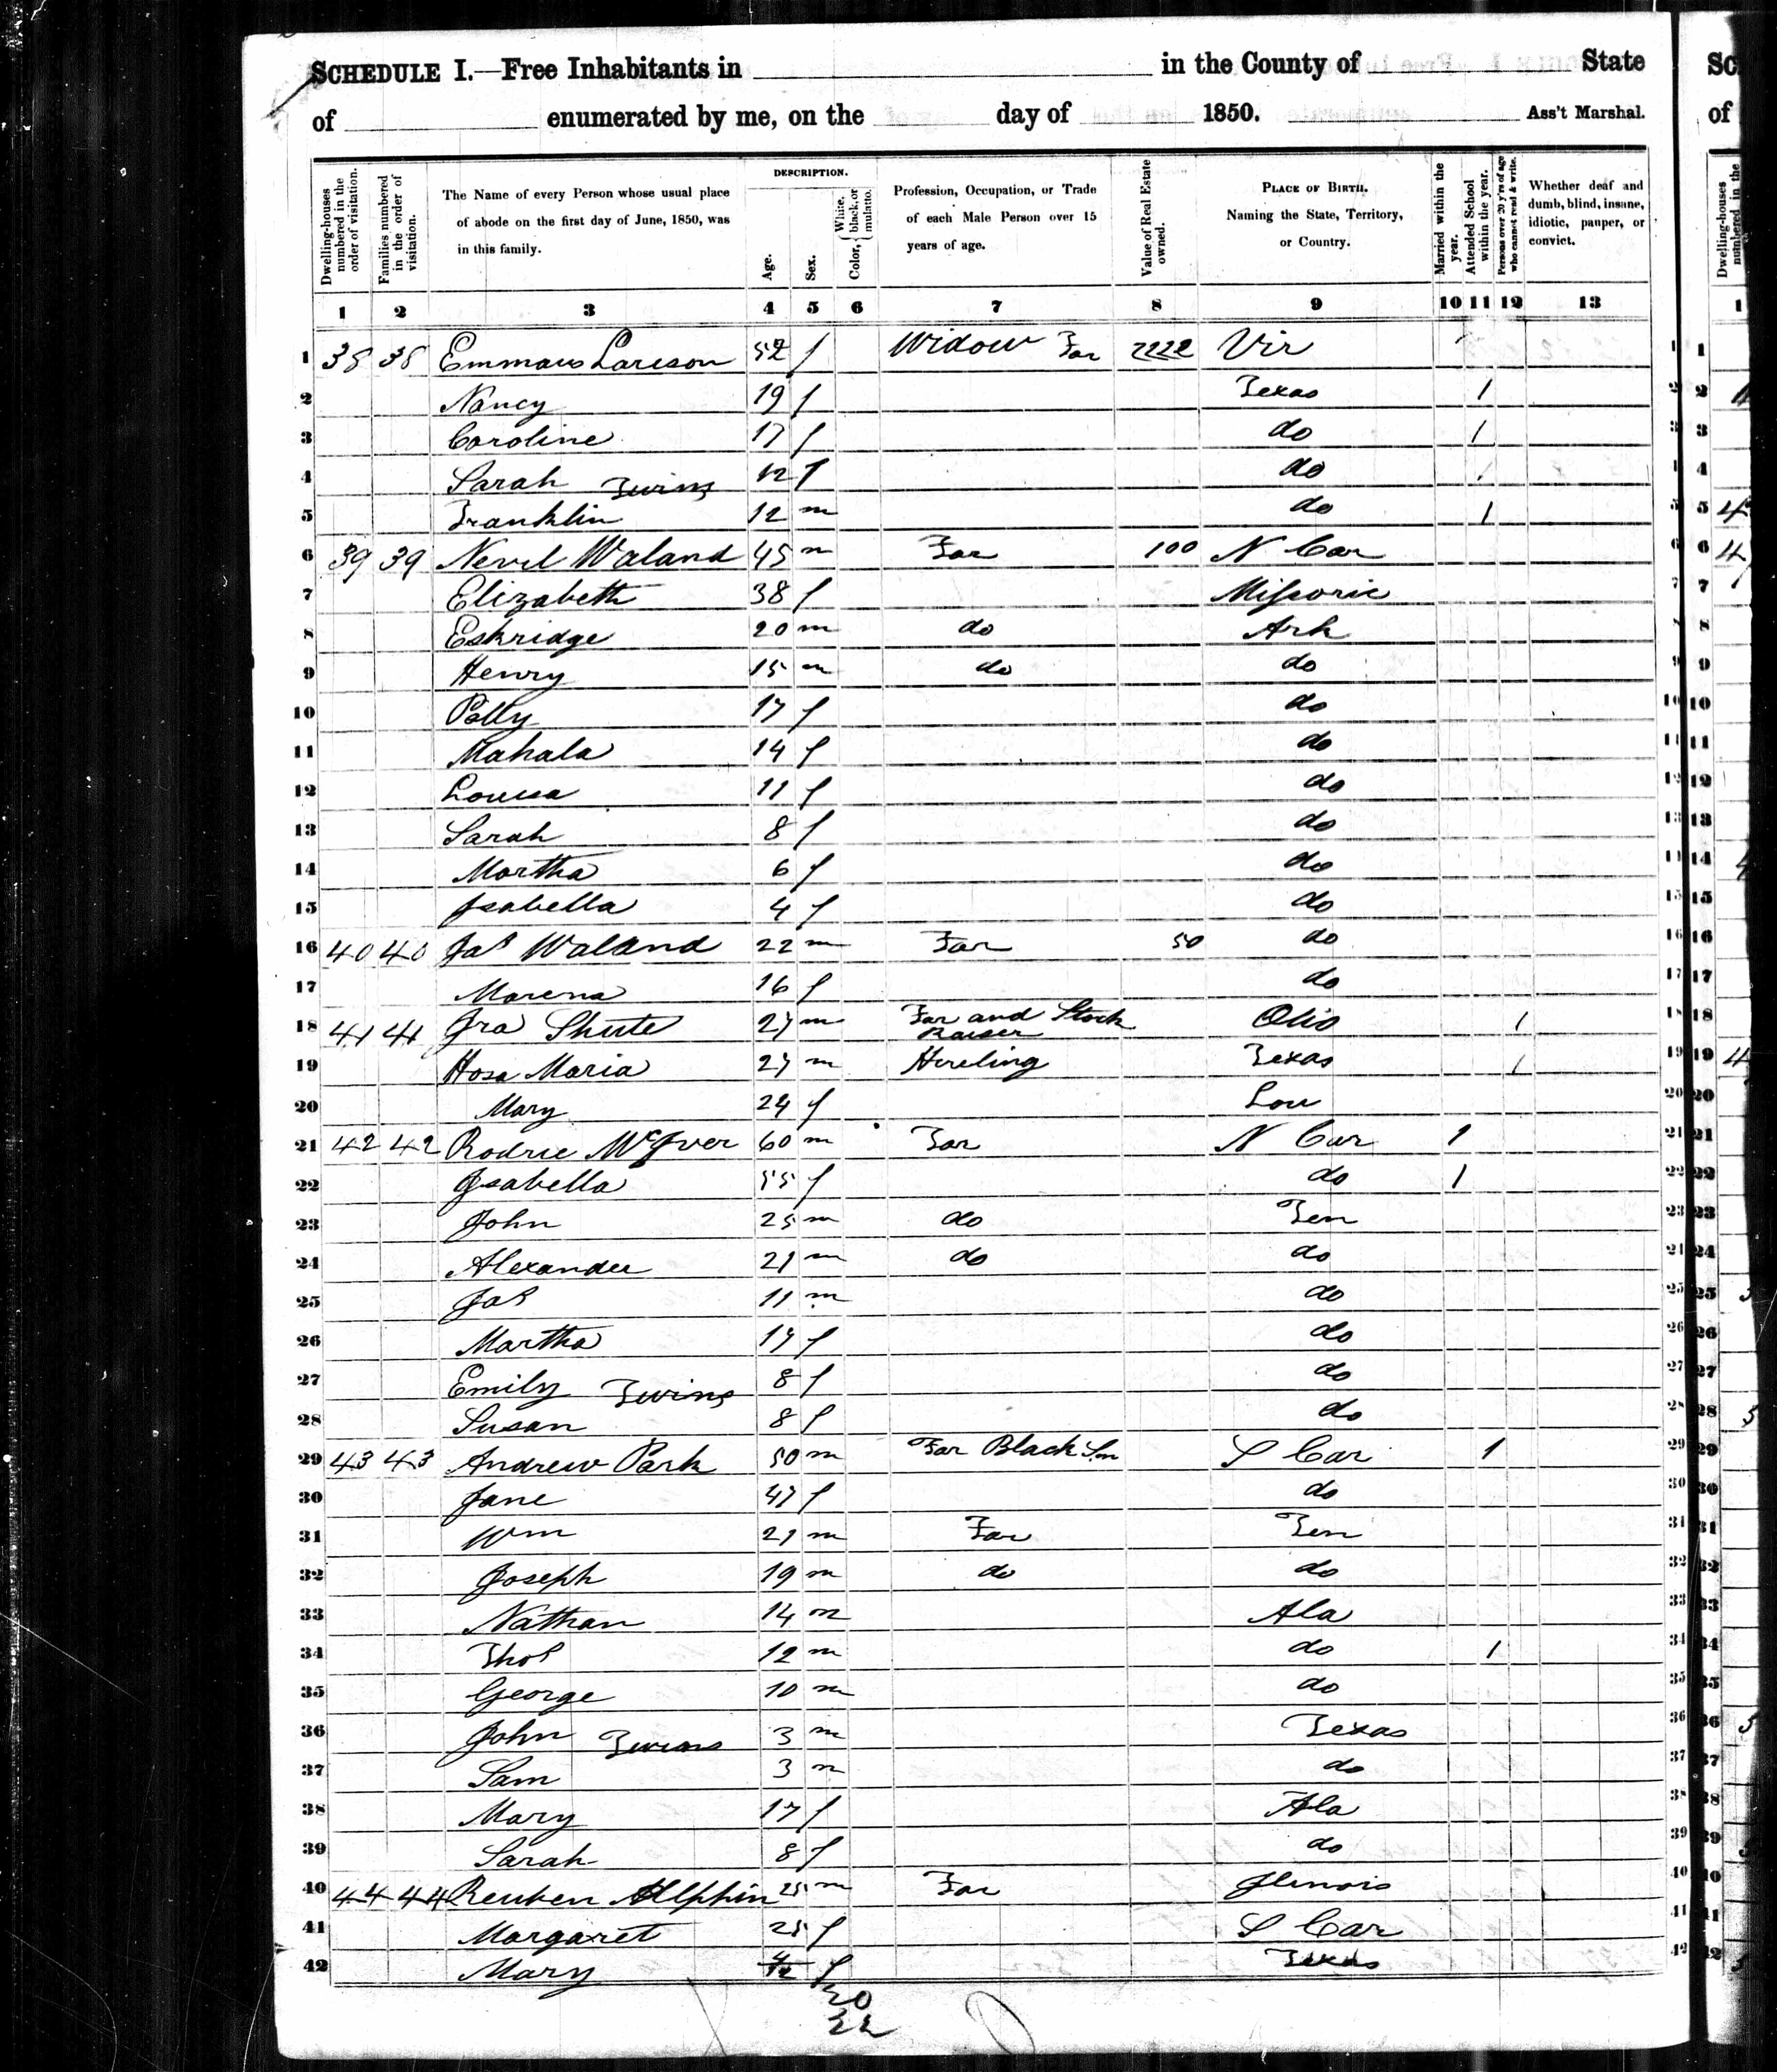 SCHEDULE I.—Free Inhabitants in in the County of State
of enumerated by me, on the day of 1850. Ass't Marshal.
Dwelling-houses numbered in the order of visitation.
Families numbered in the order of visitation.
The Name of every Person whose usual place of abode on the first day of June, 1850, was in this family.
DESCRIPTION.
Age.
Sex.
Color, { White, black, or mulatto.
Profession, Occupation, or Trade of each Male Person over 15 years of age.
Value of Real Estate owned.
PLACE OF BIRTH. Naming the State, Territory, or Country.
Married within the year.
Attended School within the year.
Persons over 20 y'rs of age who cannot read & write.
Whether deaf and dumb, blind, insane, idiotic, pauper, or convict.
1 2 3 4 5 6 7 8 9 10 11 12 13
1 38 38 52 f Widow Far 2222 Vir 1
2 Nancy 19 f Texas 1 2
3 Caroline 17 f do 1 3
4 Sarah Twins 12 f do 4
5 Franklin 12 m do 1 5
6 39 39 Nevil Waland 45 m Far 100 N Car 6
7 Elizabeth 38 f Missorie 7
8 Eskridge 20 m do Ark 8
9 Henry 15 m do do 9
10 Polly 17 f do 10
11 Mahala 14 f do 11
12 Louisa 11 f do 12
13 Sarah 8 f do 13
14 Martha 6 f do 14
15 Isabella 4 f do 15
16 40 40 Jas Waland 22 m Far 50 do 16
17 Marena 16 f do 17
18 41 41 Ira Shute 27 m Far and Stock Raiser Ohio 1 18
19 Hosa Maria 27 m Hireling Texas 1 19
20 Mary 24 f Lou 20
21 42 42 Rodric McIver 60 m Far N Car 1 21
22 Isabella 55 f do 1 22
23 John 25 m do Ten 23
24 Alexander 21 m do do 24
25 Jas 11 m do 25
26 Martha 17 f do 26
27 Emily Twins 8 f do 27
28 Susan 8 f do 28
29 43 43 Andrew Park 50 m Far Black Sm S Car 1 29
30 Jane 47 f do 30
31 Wm 21 m Far Ten 31
32 Joseph 19 m do do 32
33 Nathan 14 m Ala 33
34 Thos 12 m do 1 34
35 George 10 m do 35
36 John Twins 3 m Texas 36
37 Sam 3 m do 37
38 Mary 17 f Ala 38
39 Sarah 8 f do 39
40 44 44 Reuben Allphin 25 m Far Ilenois 40
41 Margaret 25 f S Car 41
42 Mary f Texas 42
20
22